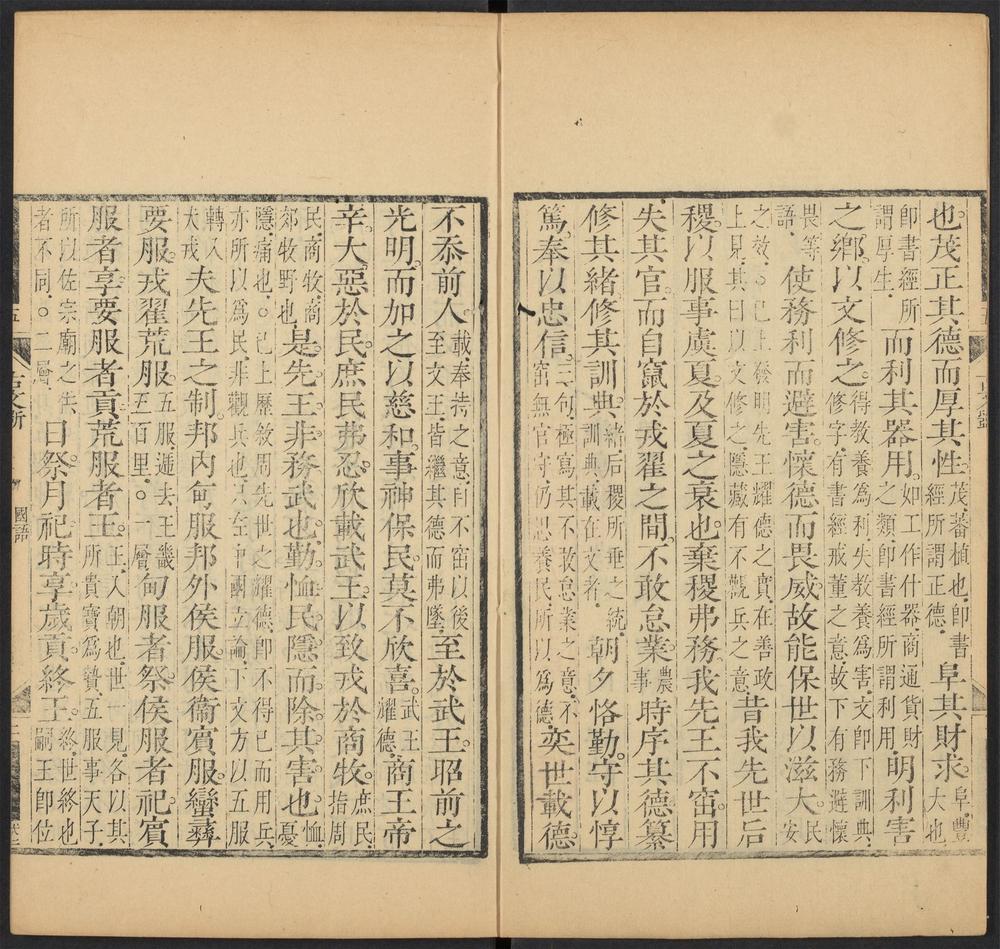 也。茂正其德而厚其性。茂、蕃植也、卽書經所謂正德、阜其財求阜、豐大也
卽書經所謂厚生、而利其器用。如工作什器商通貨財之類卽書經所謂利用、明利害
之鄉。以文修之。得教養爲利失教養爲害、文卽下訓典、修字有書經戒董之意故下有務避懷
畏等語、使務利而避害。懷德而畏威故能保世以滋大。民安
之效。○已上發明先王耀德之實、在善政上見、其曰以文修之、隱藏有不觀兵之意昔我先世后
稷。以服事虞夏。及夏之衰也。棄稷弗務。我先王不窋用
失其官。而自竄於戎翟之間。不敢怠業。農事時序其德。纂
修其緒。修其訓典。緒、后稷所垂之統、訓典、載在文者、朝夕恪勤。守以惇
篤。奉以忠信。三句、極寫其不敢怠業之意、不窋無官守、仍思養民、所以爲德、奕世載德
不忝前人。載、奉持之意、卽不窋以後至文王皆繼其德而弗墜、至於武王。昭前之
光明。而加之以慈和。事神保民。莫不欣喜。武王耀德、商王帝
辛。大惡於民。庶民弗忍。欣載武王。以致戎於商牧。庶民、指周
民、商牧、商郊牧野也是先王非務武也。勤恤民隱。而除其害也。恤、憂
隱、痛也、○已上歷敘周先世之耀德、卽不得已而用兵、亦所以爲民、非觀兵也、只在中國立論、下文方以五服
轉入犬戎夫先王之制。邦內甸服。邦外侯服。侯衞賓服。蠻彝
要服。戎翟荒服。五服遞去王畿五百里。○一層甸服者祭。侯服者祀。賓
服者享。要服者貢。荒服者王。王、入朝也、世一見、各以其所貴寶爲贄、五服事天子、
所以佐宗廟之供者不同。○二層日祭。月祀。時享。歲貢。終王。終、世終也嗣王卽位
國語